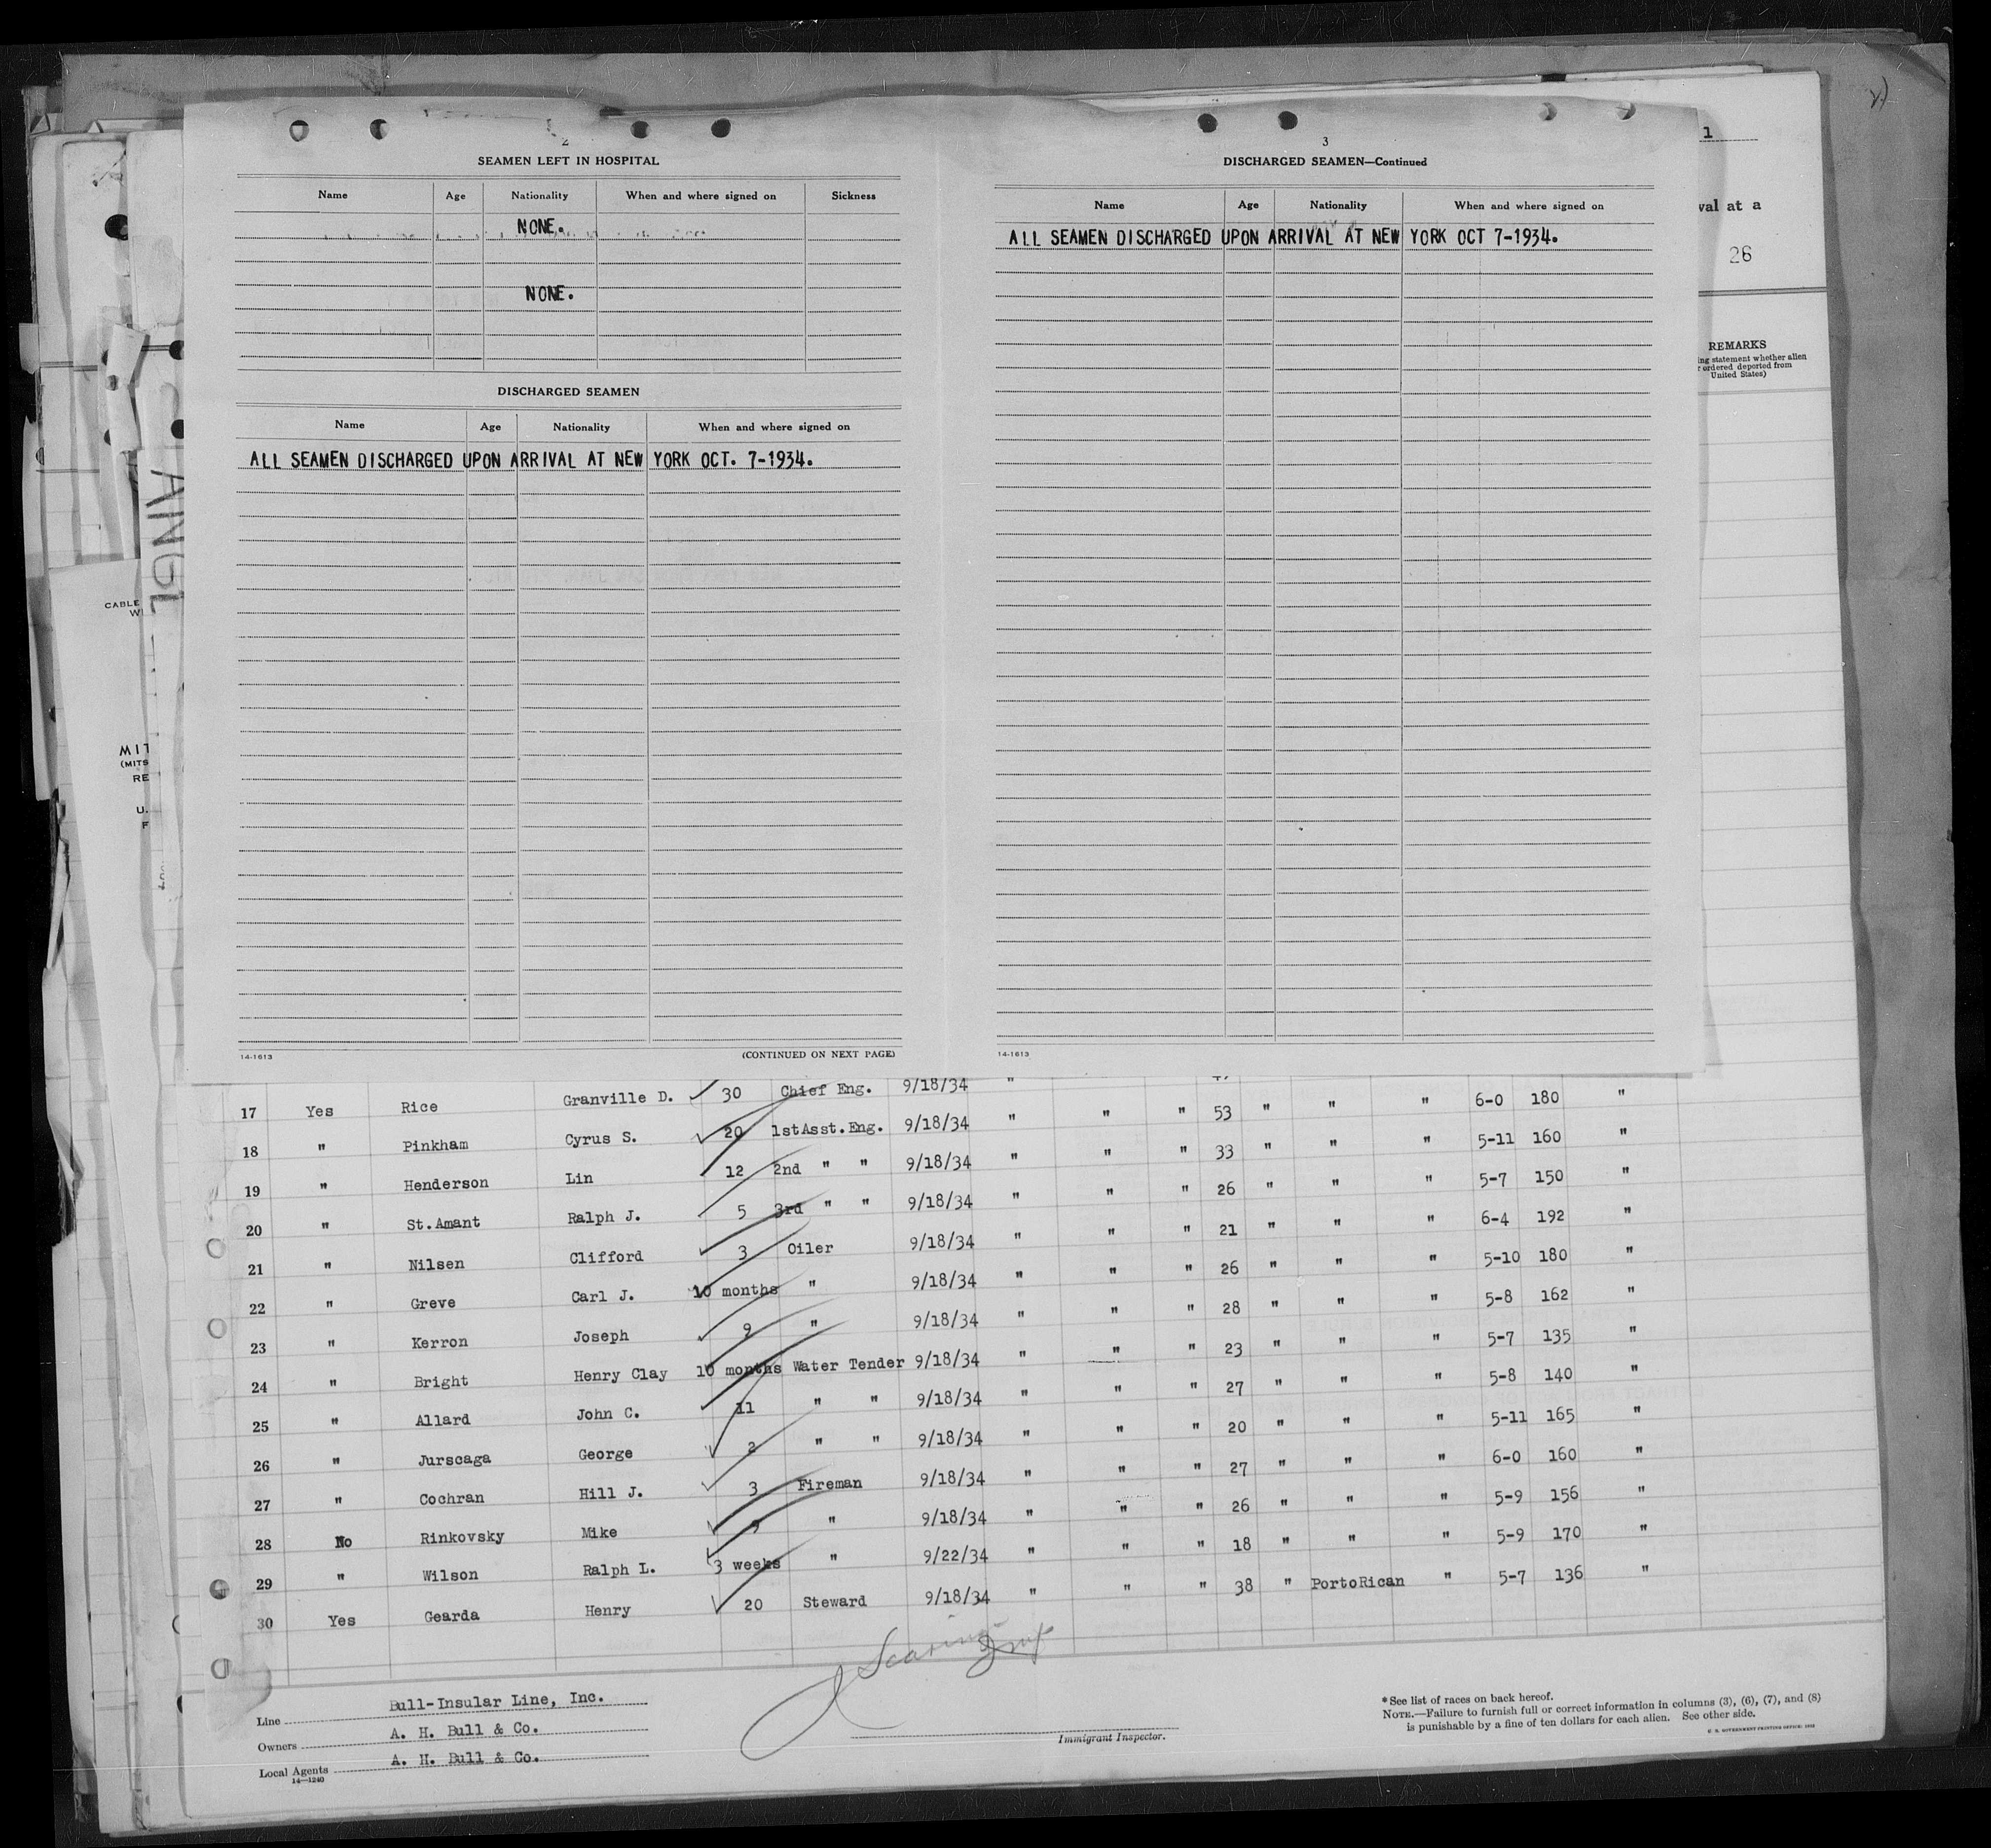 2
SEAMEN LEFT IN HOSPITAL
Name Age Nationality When and where signed on Sickness
NONE.
NONE.
DISCHARGED SEAMEN
Name Age Nationality When and where signed on
ALL SEAMEN DISCHARGED UPON ARRIVAL AT NEW YORK OCT. 7-1934.
14-1613 (CONTINUED ON NEXT PAGE)
3
DISCHARGED SEAMEN—Continued
Name Age Nationality When and where signed on
ALL SEAMEN DISCHARGED UPON ARRIVAL AT NEW YORK OCT 7-1934.
14-1613
1
val at a
26
REMARKS
ing statement whether alien
r ordered deported from
United States)
ANGL
CABLE
MIT
(MITS
RE
U.
F
17 Yes Rice Granville D. 30 Chief Eng. 9/18/34 " " " 53 " " " 6-0 180 "
18 " Pinkham Cyrus S. 20 1stAsst.Eng. 9/18/34 " " " 33 " " " 5-11 160 "
19 " Henderson Lin 12 2nd " " 9/18/34 " " " 26 " " " 5-7 150 "
20 " St.Amant Ralph J. 5 3rd " " 9/18/34 " " " 21 " " " 6-4 192 "
21 " Nilsen Clifford 3 Oiler 9/18/34 " " " 26 " " " 5-10 180 "
22 " Greve Carl J. 10 months " 9/18/34 " " " 28 " " " 5-8 162 "
23 " Kerron Joseph 9 " 9/18/34 " " " 23 " " " 5-7 135 "
24 " Bright Henry Clay 10 months Water Tender 9/18/34 " " " 27 " " " 5-8 140 "
25 " Allard John C. 11 " " 9/18/34 " " " 20 " " " 5-11 165 "
26 " Jurscaga George 2 " " 9/18/34 " " " 27 " " " 6-0 160 "
27 " Cochran Hill J. 3 Fireman 9/18/34 " " " 26 " " " 5-9 156 "
28 No Rinkovsky Mike " 9/18/34 " " " 18 " " " 5-9 170 "
29 " Wilson Ralph L. 3 weeks " 9/22/34 " " " 38 " PortoRican " 5-7 136 "
30 Yes Gearda Henry 20 Steward 9/18/34 "
Line Bull-Insular Line, Inc.
Owners A. H. Bull & Co.
Local Agents A. H. Bull & Co.
14—1240
Immigrant Inspector.
*See list of races on back hereof.
NOTE.—Failure to furnish full or correct information in columns (3), (6), (7), and (8)
is punishable by a fine of ten dollars for each alien. See other side.
U. S. GOVERNMENT PRINTING OFFICE: 1932